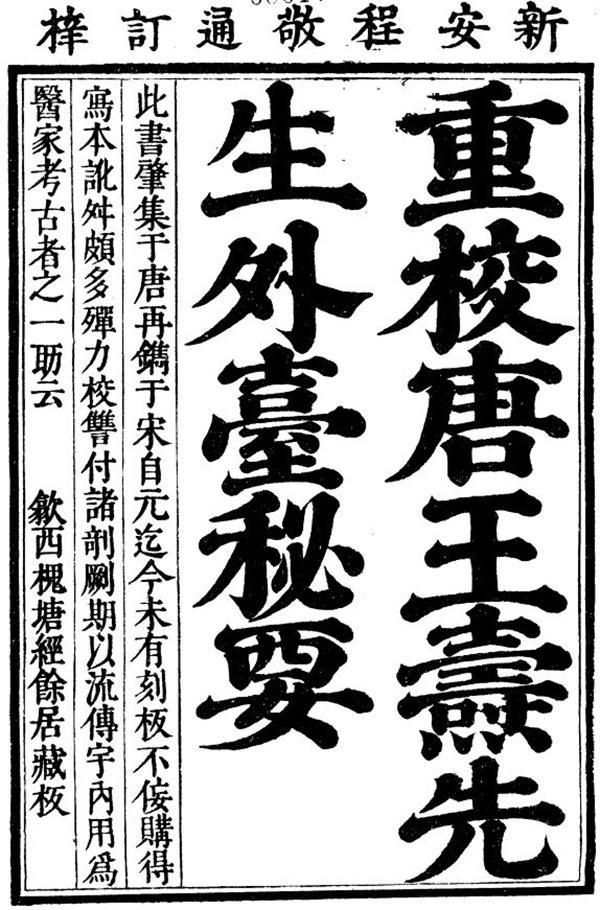 新安程敬通訂梓
重挍唐王燾先
生外臺秘要
此書肇集于唐再鐫于宋自元迄今未有刻板不佞購得
寫本訛舛頗多殫力校讐付諸剞劂期以流傳宇內用爲
醫家考古者之一助云 歙西槐塘經餘居藏板